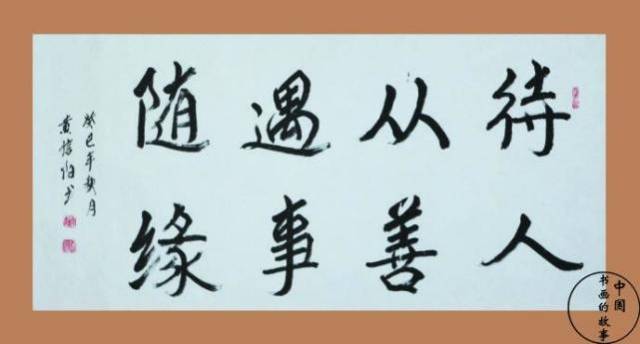 待人
从善
遇事
随缘
癸巳年秋月
中国
书画的故事